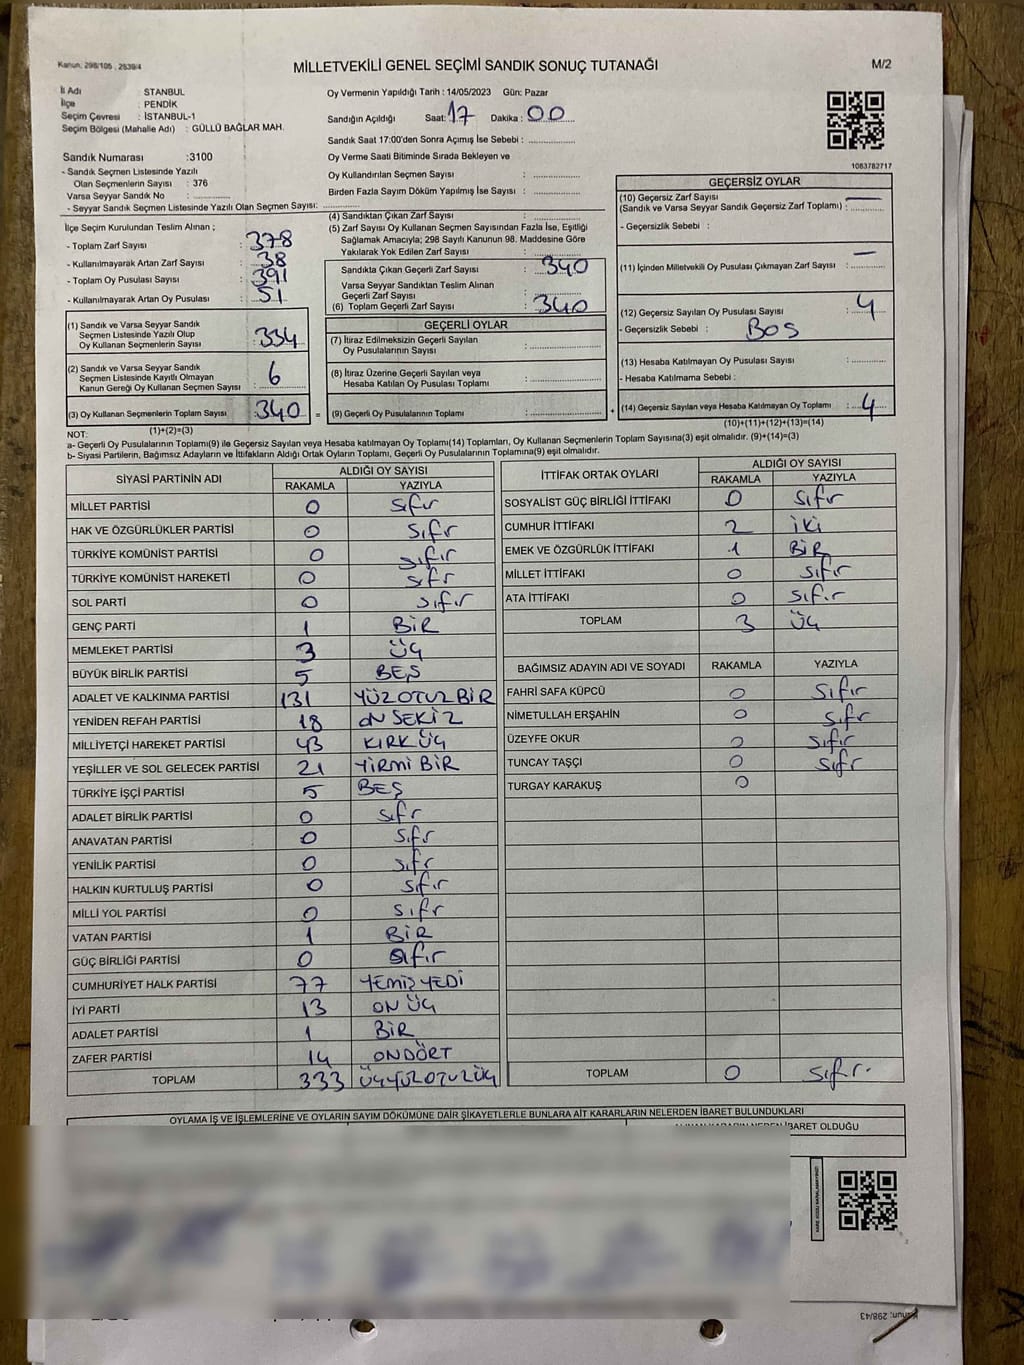 Kanun: 298/105 , 2839/4
MİLLETVEKİLİ GENEL SEÇİMİ SANDIK SONUÇ TUTANAĞI
M/2
İl Adı : İSTANBUL
İlçe : PENDİK
Seçim Çevresi : İSTANBUL-1
Seçim Bölgesi (Mahalle Adı) : GÜLLÜ BAĞLAR MAH.
Oy Vermenin Yapıldığı Tarih : 14/05/2023 Gün: Pazar
Sandığın Açıldığı Saat: 17 Dakika : 00
Sandık Saat 17:00'den Sonra Açılmış İse Sebebi :
Oy Verme Saati Bitiminde Sırada Bekleyen ve
Oy Kullandırılan Seçmen Sayısı :
Birden Fazla Sayım Döküm Yapılmış İse Sayısı :
1083782717
Sandık Numarası :3100
- Sandık Seçmen Listesinde Yazılı
Olan Seçmenlerin Sayısı : 376
Varsa Seyyar Sandık No :
- Seyyar Sandık Seçmen Listesinde Yazılı Olan Seçmen Sayısı:
İlçe Seçim Kurulundan Teslim Alınan ;
- Toplam Zarf Sayısı : 378
- Kullanılmayarak Artan Zarf Sayısı : 38
- Toplam Oy Pusulası Sayısı : 391
- Kullanılmayarak Artan Oy Pusulası : 51
(1) Sandık ve Varsa Seyyar Sandık
Seçmen Listesinde Yazılı Olup
Oy Kullanan Seçmenlerin Sayısı : 334
(2) Sandık ve Varsa Seyyar Sandık
Seçmen Listesinde Kayıtlı Olmayan
Kanun Gereği Oy Kullanan Seçmen Sayısı : 6
(3) Oy Kullanan Seçmenlerin Toplam Sayısı : 340 =
(1)+(2)=(3)
(4) Sandıktan Çıkan Zarf Sayısı :
(5) Zarf Sayısı Oy Kullanan Seçmen Sayısından Fazla İse, Eşitliği
Sağlamak Amacıyla; 298 Sayılı Kanunun 98. Maddesine Göre
Yakılarak Yok Edilen Zarf Sayısı :
Sandıkta Çıkan Geçerli Zarf Sayısı : 340
Varsa Seyyar Sandıktan Teslim Alınan
Geçerli Zarf Sayısı :
(6) Toplam Geçerli Zarf Sayısı : 340
GEÇERLİ OYLAR
(7) İtiraz Edilmeksizin Geçerli Sayılan
Oy Pusulalarının Sayısı :
(8) İtiraz Üzerine Geçerli Sayılan veya
Hesaba Katılan Oy Pusulası Toplamı :
(9) Geçerli Oy Pusulalarının Toplamı : +
GEÇERSİZ OYLAR
(10) Geçersiz Zarf Sayısı
(Sandık ve Varsa Seyyar Sandık Geçersiz Zarf Toplamı) : —
- Geçersizlik Sebebi :
(11) İçinden Milletvekili Oy Pusulası Çıkmayan Zarf Sayısı : —
(12) Geçersiz Sayılan Oy Pusulası Sayısı : 4
- Geçersizlik Sebebi : BOŞ
(13) Hesaba Katılmayan Oy Pusulası Sayısı :
- Hesaba Katılmama Sebebi :
(14) Geçersiz Sayılan veya Hesaba Katılmayan Oy Toplamı : 4
(10)+(11)+(12)+(13)=(14)
NOT:
a- Geçerli Oy Pusulalarının Toplamı(9) ile Geçersiz Sayılan veya Hesaba katılmayan Oy Toplamı(14) Toplamları, Oy Kullanan Seçmenlerin Toplam Sayısına(3) eşit olmalıdır. (9)+(14)=(3)
b- Siyasi Partilerin, Bağımsız Adayların ve İttifakların Aldığı Ortak Oyların Toplamı, Geçerli Oy Pusulalarının Toplamına(9) eşit olmalıdır.
SİYASİ PARTİNİN ADI ALDIĞI OY SAYISI
RAKAMLA YAZIYLA
MİLLET PARTİSİ 0 sıfır
HAK VE ÖZGÜRLÜKLER PARTİSİ 0 sıfır
TÜRKİYE KOMÜNİST PARTİSİ 0 sıfır
TÜRKİYE KOMÜNİST HAREKETİ 0 sıfır
SOL PARTİ 0 sıfır
GENÇ PARTİ 1 BİR
MEMLEKET PARTİSİ 3 ÜÇ
BÜYÜK BİRLİK PARTİSİ 5 BEŞ
ADALET VE KALKINMA PARTİSİ 131 YÜZOTUZBİR
YENİDEN REFAH PARTİSİ 18 ON SEKİZ
MİLLİYETÇİ HAREKET PARTİSİ 43 KIRK ÜÇ
YEŞİLLER VE SOL GELECEK PARTİSİ 21 YİRMİ BİR
TÜRKİYE İŞÇİ PARTİSİ 5 BEŞ
ADALET BİRLİK PARTİSİ 0 sıfır
ANAVATAN PARTİSİ 0 sıfır
YENİLİK PARTİSİ 0 sıfır
HALKIN KURTULUŞ PARTİSİ 0 sıfır
MİLLİ YOL PARTİSİ 0 sıfır
VATAN PARTİSİ 1 BİR
GÜÇ BİRLİĞİ PARTİSİ 0 sıfır
CUMHURİYET HALK PARTİSİ 77 YEMİŞ YEDİ
İYİ PARTİ 13 ON ÜÇ
ADALET PARTİSİ 1 BİR
ZAFER PARTİSİ 14 ONDÖRT
TOPLAM 333 ÜÇYÜZOTUZÜÇ
İTTİFAK ORTAK OYLARI ALDIĞI OY SAYISI
RAKAMLA YAZIYLA
SOSYALİST GÜÇ BİRLİĞİ İTTİFAKI 0 sıfır
CUMHUR İTTİFAKI 2 İKİ
EMEK VE ÖZGÜRLÜK İTTİFAKI 1 BİR
MİLLET İTTİFAKI 0 sıfır
ATA İTTİFAKI 0 sıfır
TOPLAM 3 ÜÇ
BAĞIMSIZ ADAYIN ADI VE SOYADI RAKAMLA YAZIYLA
FAHRİ SAFA KÜPCÜ 0 sıfır
NİMETULLAH ERŞAHİN 0 sıfır
ÜZEYFE OKUR 0 sıfır
TUNCAY TAŞÇI 0 sıfır
TURGAY KARAKUŞ 0
TOPLAM 0 sıfır.
OYLAMA İŞ VE İŞLEMLERİNE VE OYLARIN SAYIM DÖKÜMÜNE DAİR ŞİKAYETLERLE BUNLARA AİT KARARLARIN NELERDEN İBARET BULUNDUKLARI
ALINAN KARARIN NEDEN İBARET OLDUĞU
Kanun: 298/43